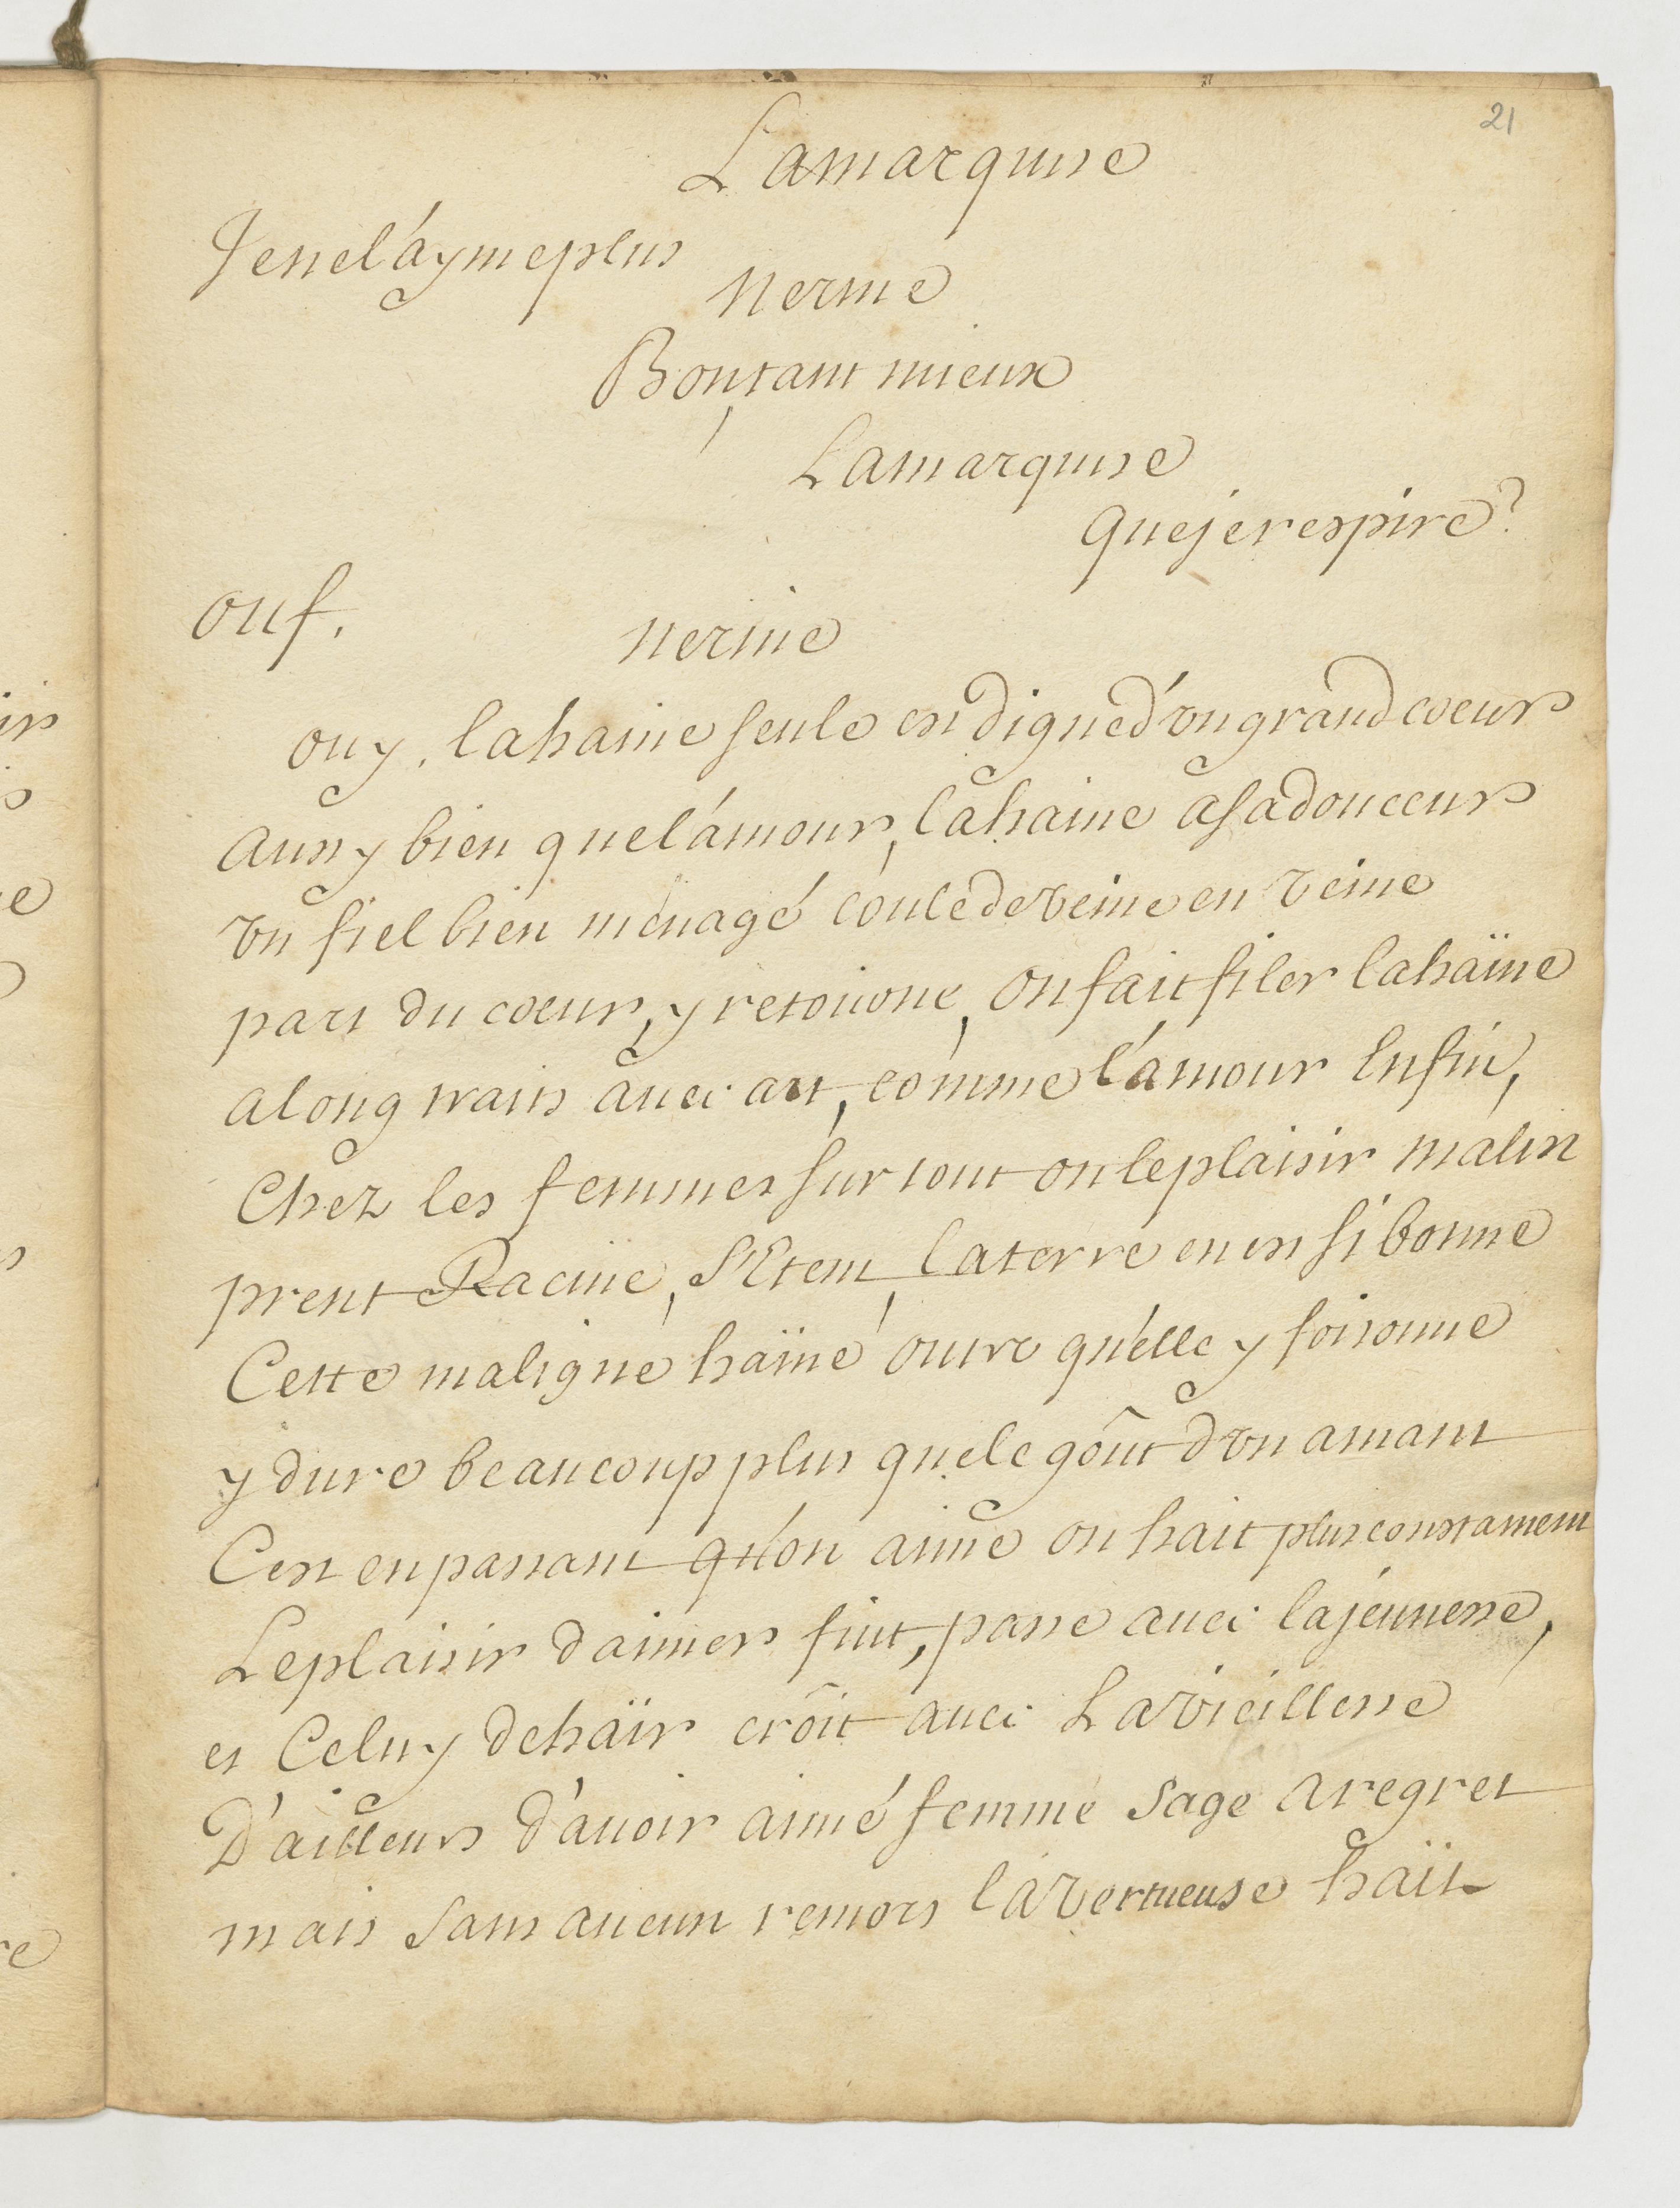 21
La marquise
Je ne l'ayme plus
Nerine
Bon, tant mieux
La marquise
que je respire?
ouf.
Nerine
ouy, la haine seule est digne d'un grand coeur
aussy bien que l'amour, la haine a sa douceur
vn fiel bien menagé coule de veine en veine
part du coeur, y retourne, on fait filer la haïne
a long traits avec art, comme l'amour Enfin,
Chez les femmes sur tout on le plaisir malin
prent Racine, s'Etent, la terre en est si bonne
Cette maligne haïne outre qu'elle y foisonne
y dure beaucoup plus que le goût d'vn amant
Cest en passant qu'on aime on hait plus constament
Le plaisir d'aimer finit, passe avec la jeunesse,
et Celuy de haïr crôit avec La vieillesse
D'ailleurs d'avoir aimé femme sage a regret
mais sans aucun remors la vertueuse haït